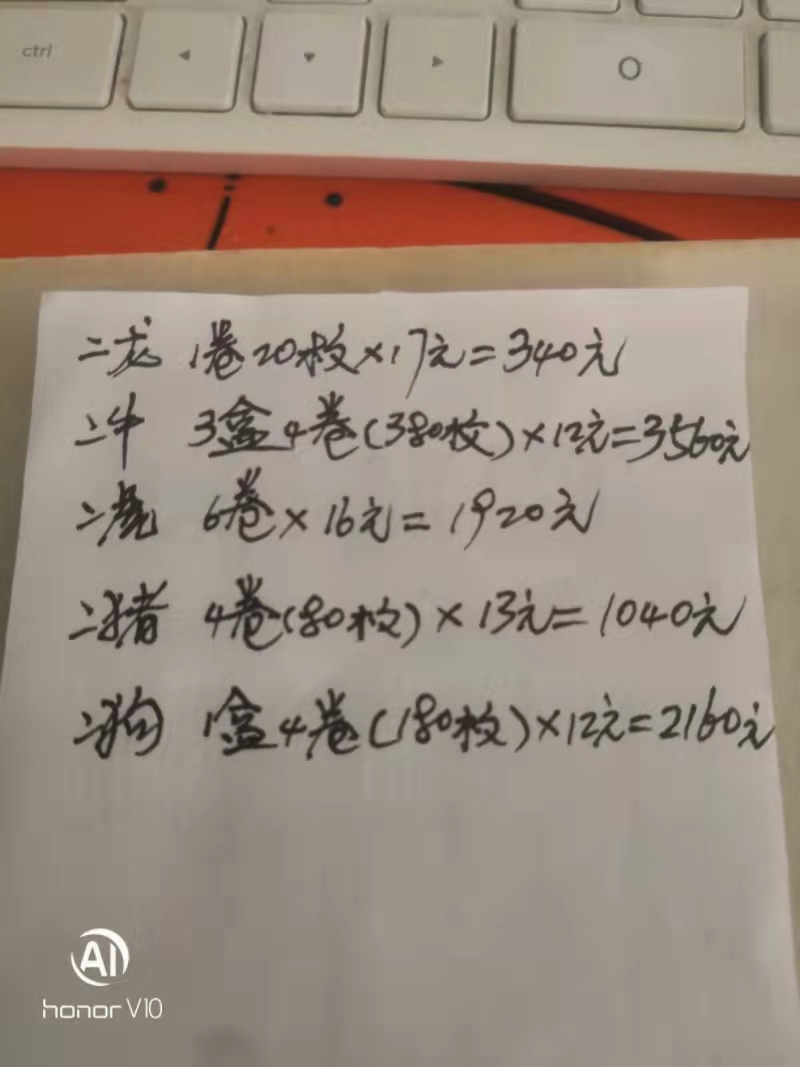 ctrl
二龙 1卷20枚×17元=340元
二牛 3盒4卷(380枚)×12元=3560元
二虎 6卷×16元=1920元
二猪 4卷(80枚)×13元=1040元
二狗 1盒4卷(180枚)×12元=2160元
AI
honor V10